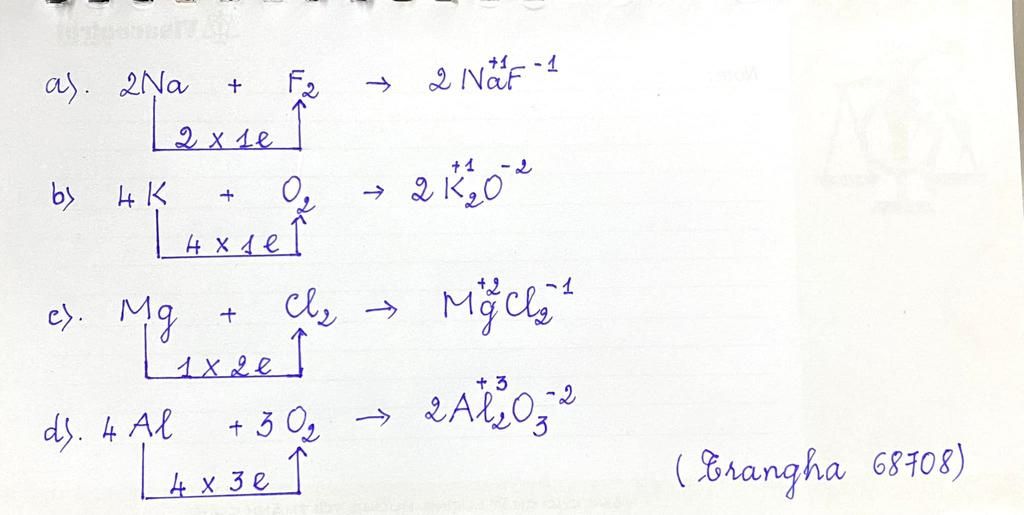 a). 2Na + F₂ → 2Na⁺¹F⁻¹
2 x 1e
b) 4K + O₂ → 2K⁺¹₂O⁻²
4 x 1e
c). Mg + Cl₂ → Mg⁺²Cl₂⁻¹
1 x 2e
d). 4Al + 3O₂ → 2Al⁺³₂O₃⁻²
4 x 3e
(Trangha 68708)